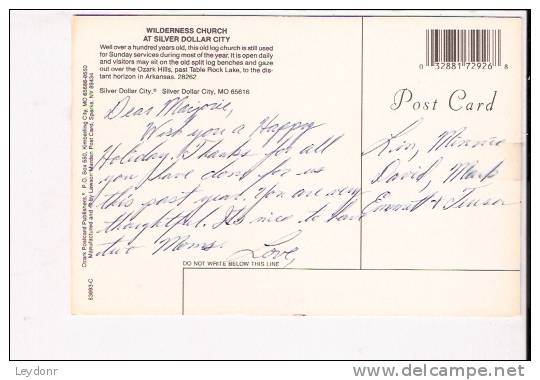 WILDERNESS CHURCH
AT SILVER DOLLAR CITY
Well over a hundred years old, this old log church is still used
for Sunday services during most of the year. It is open daily
and visitors may sit on the old split log benches and gaze
out over the Ozark Hills, past Table Rock Lake, to the dis-
tant horizon in Arkansas. 28262
Silver Dollar City,® Silver Dollar City, MO 65616
0 32881 72926 8
Post Card
Dear Marjorie,
Wish you a Happy
Holiday. Thanks for all
you have done for us
this past year. You are very
thoughtful. It's nice to have
two Moms.
Love,
Kin, Minnie
David, Mark
Everett &
DO NOT WRITE BELOW THIS LINE
Ozark Postcard Publishers, P.O. Box 650, Kimberling City, MO
Manufactured and by Lawson Mardon Post Card, Sparks, NV 89434
E3993-C
Leydonr
delcampe.net